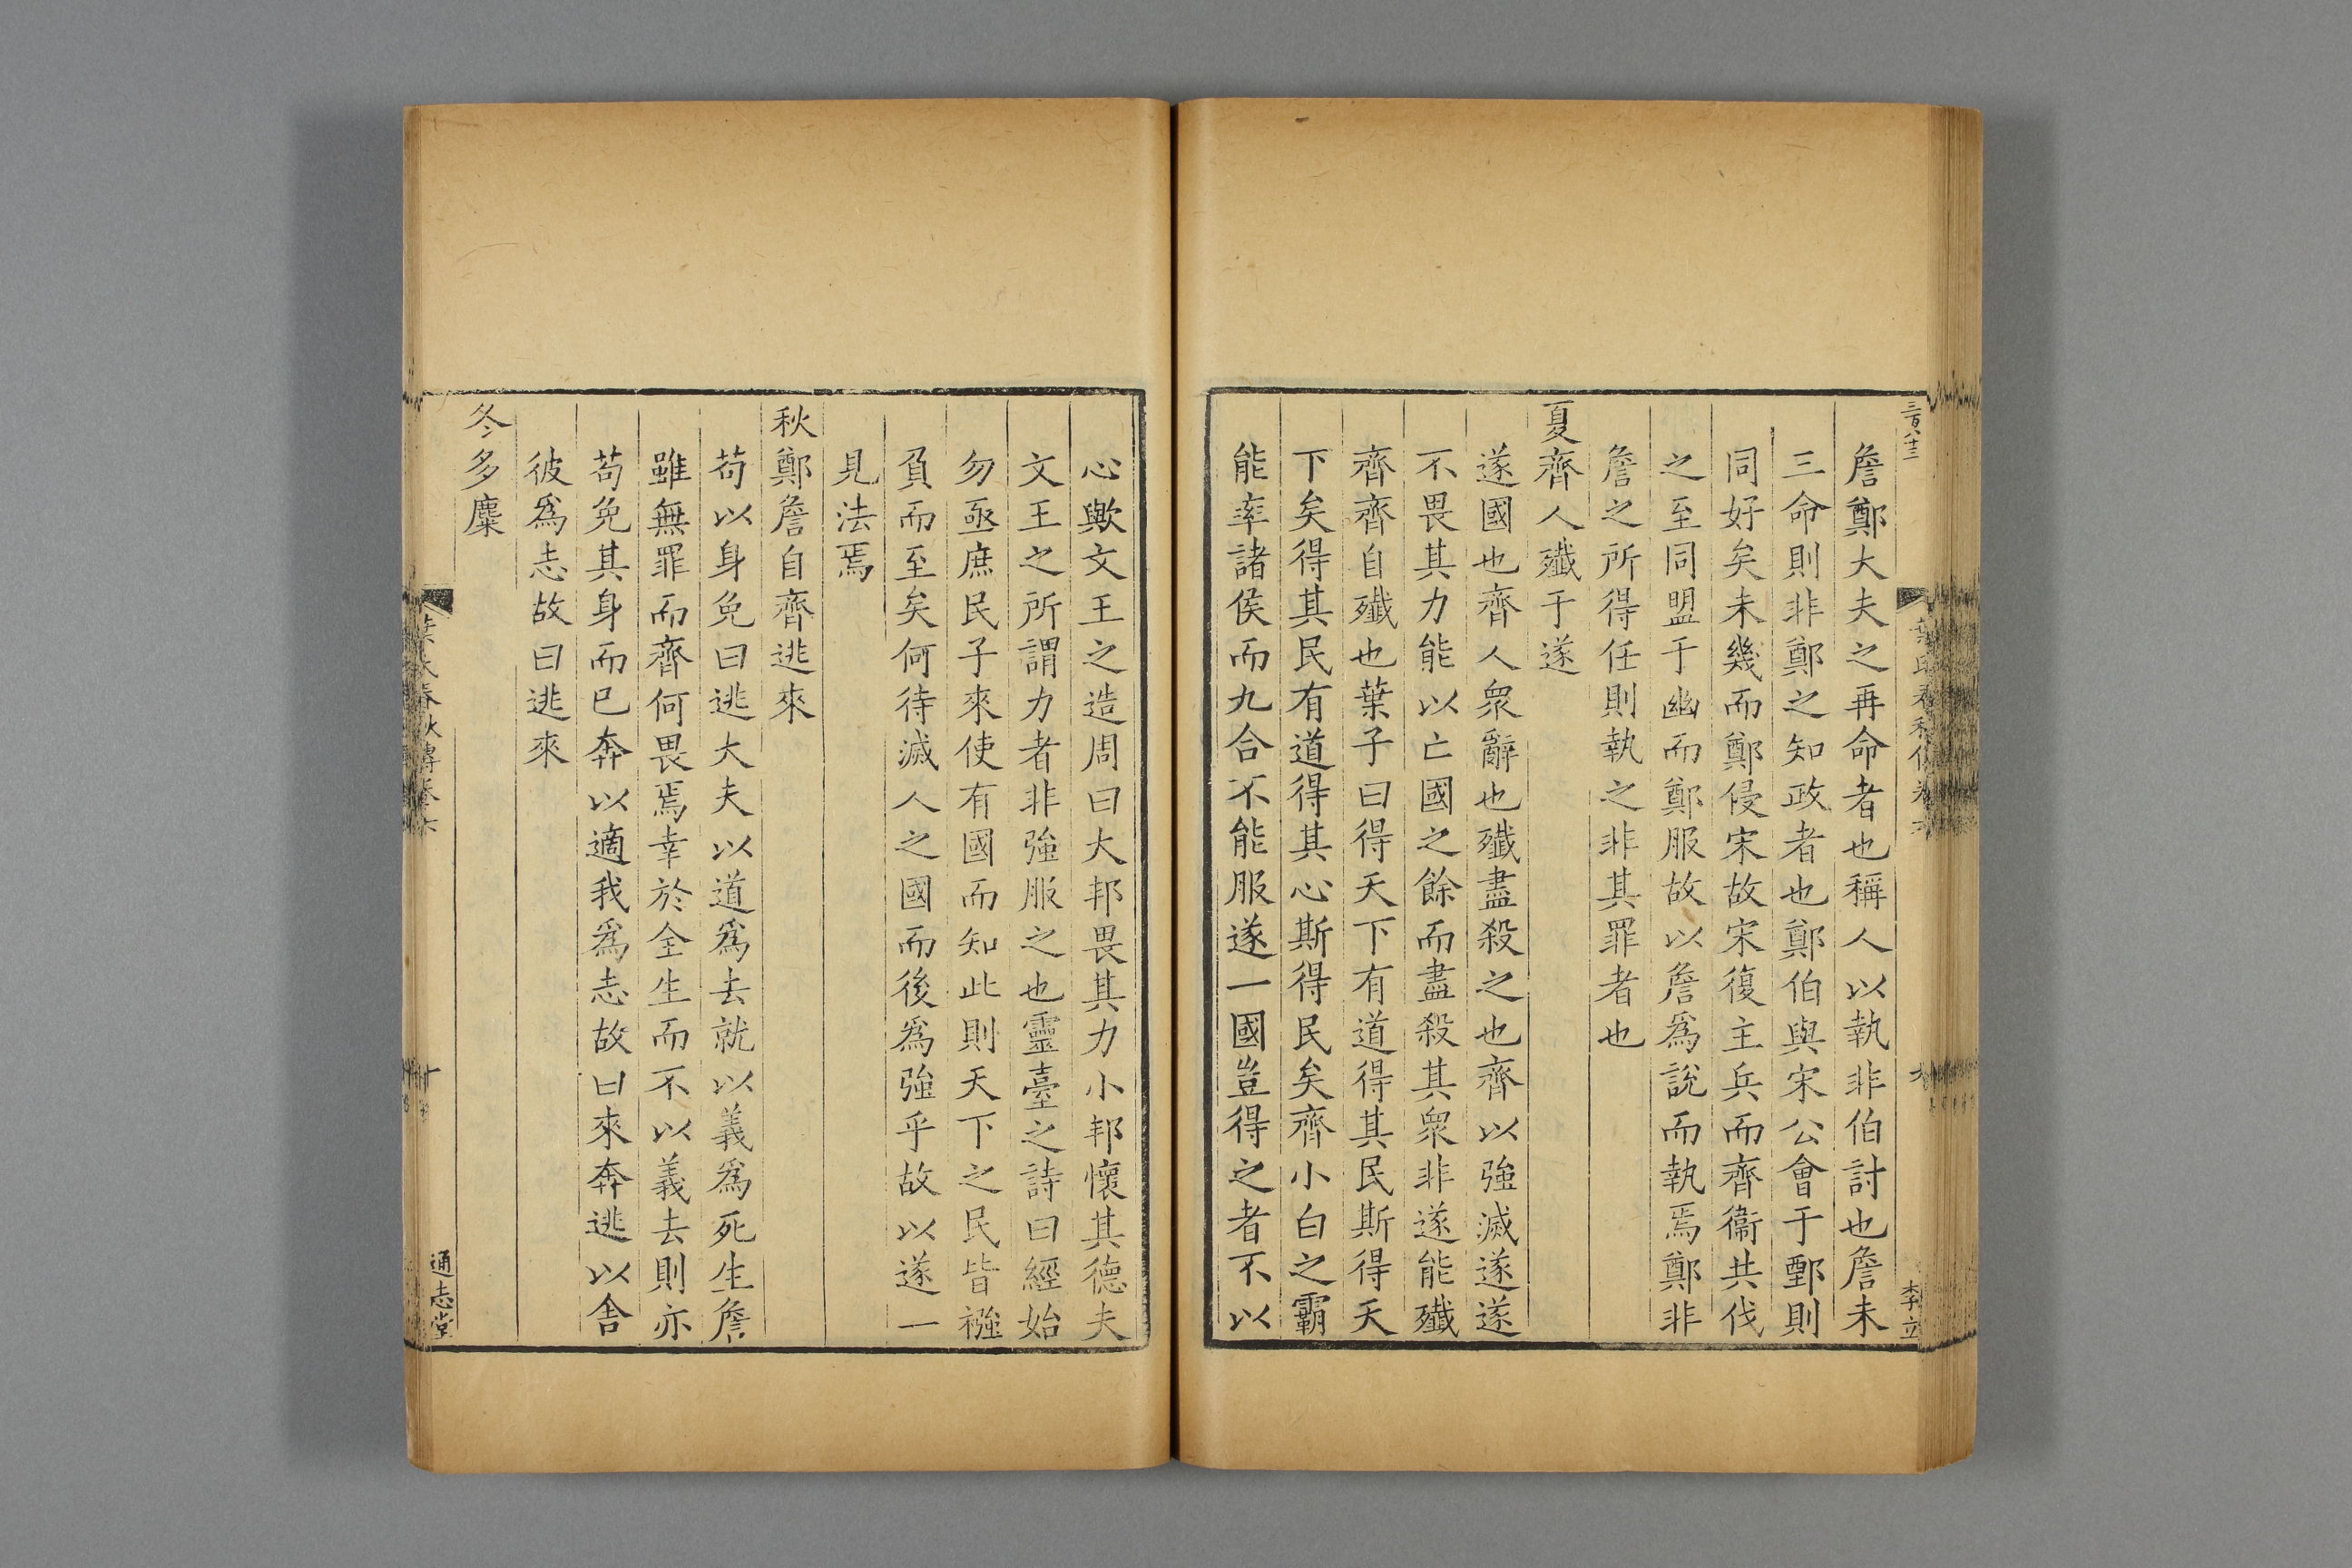 詹鄭大夫之再命者也稱人以執非伯討也詹未
三命則非鄭之知政者也鄭伯與宋公會于鄄則
同好矣未幾而鄭侵宋故宋復主兵而齊衞共伐
之至同盟于幽而鄭服故以詹爲說而執焉鄭非
詹之所得任則執之非其罪者也
夏齊人殱于遂
遂國也齊人衆辭也殱盡殺之也齊以強滅遂遂
不畏其力能以亡國之餘而盡殺其衆非遂能殱
齊齊自殱也葉子曰得天下有道得其民斯得天
下矣得其民有道得其心斯得民矣齊小白之霸
能率諸侯而九合不能服遂一國豈得之者不以
心歟文王之造周曰大邦畏其力小邦懷其德夫
文王之所謂力者非強服之也靈臺之詩曰經始
勿亟庶民子來使有國而知此則天下之民皆襁
負而至矣何待滅人之國而後爲強乎故以遂一
見法焉
秋鄭詹自齊逃來
苟以身免曰逃大夫以道爲去就以義爲死生詹
雖無罪而齊何畏焉幸於全生而不以義去則亦
苟免其身而已奔以適我爲志故曰來奔逃以舍
彼爲志故曰逃來
冬多麋
葉氏春秋傳卷六
十
通志堂
三百八十三
李立